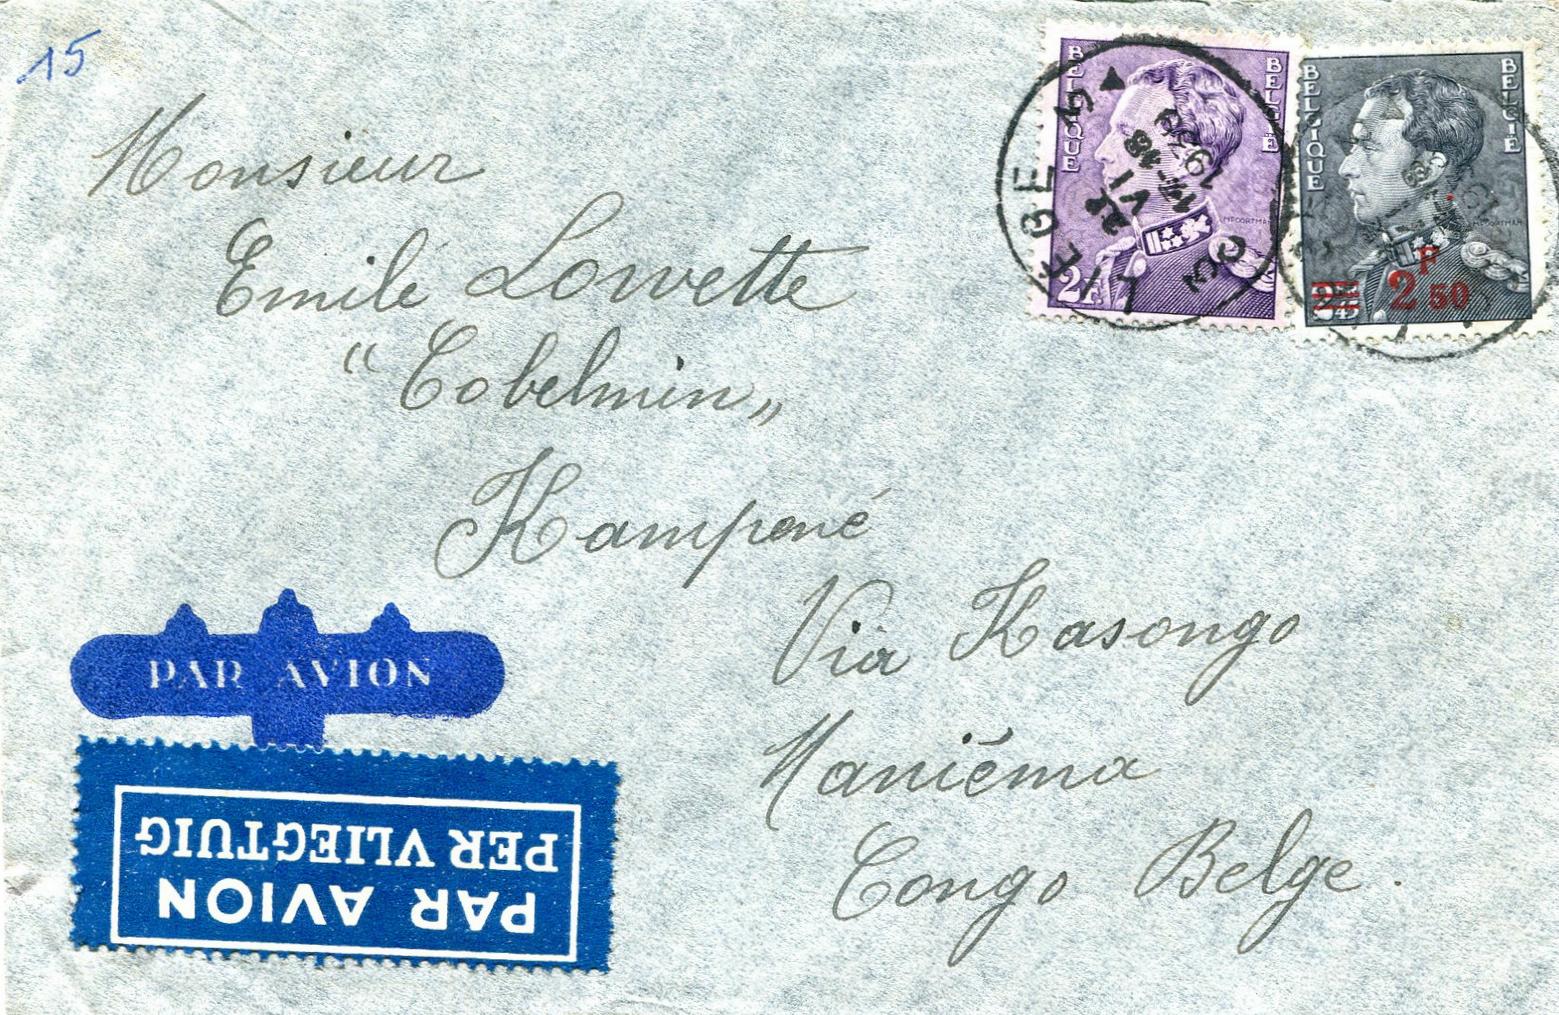 15
BELGIQUE BELGIË
2F
BELGIQUE BELGIË
2F 50
LIEGE
1939
Monsieur
Emile Lowette
"Cobelmin„
Kampené
Via Kasongo
Maniéma
Congo Belge.
PAR AVION
PER VLIEGTUIG
PAR AVION